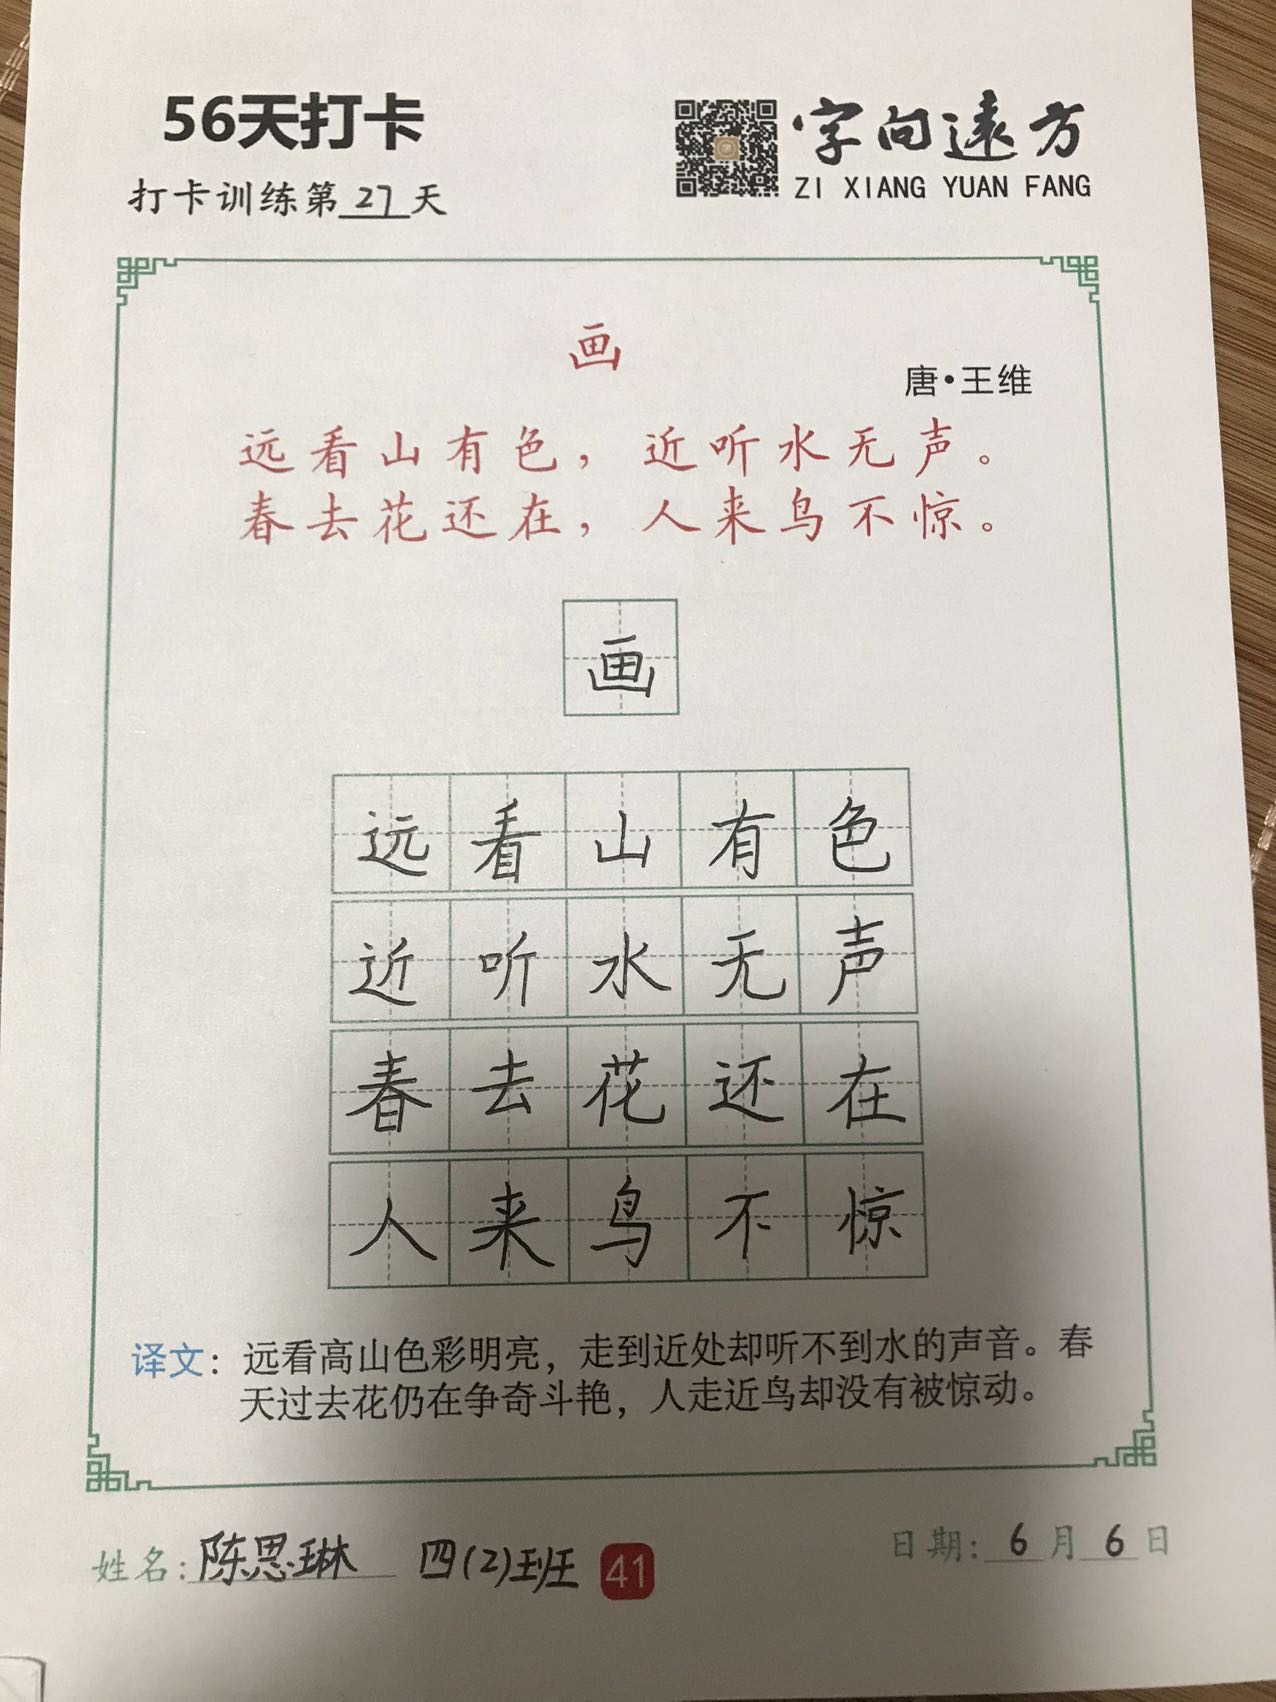 56天打卡
打卡训练第27天
字向遠方
ZI XIANG YUAN FANG
画
唐·王维
远看山有色，近听水无声。
春去花还在，人来鸟不惊。
画
远看山有色
近听水无声
春去花还在
人来鸟不惊
译文：远看高山色彩明亮，走到近处却听不到水的声音。春
天过去花仍在争奇斗艳，人走近鸟却没有被惊动。
姓名：陈思琳 四(2)班 41 日期：6月6日